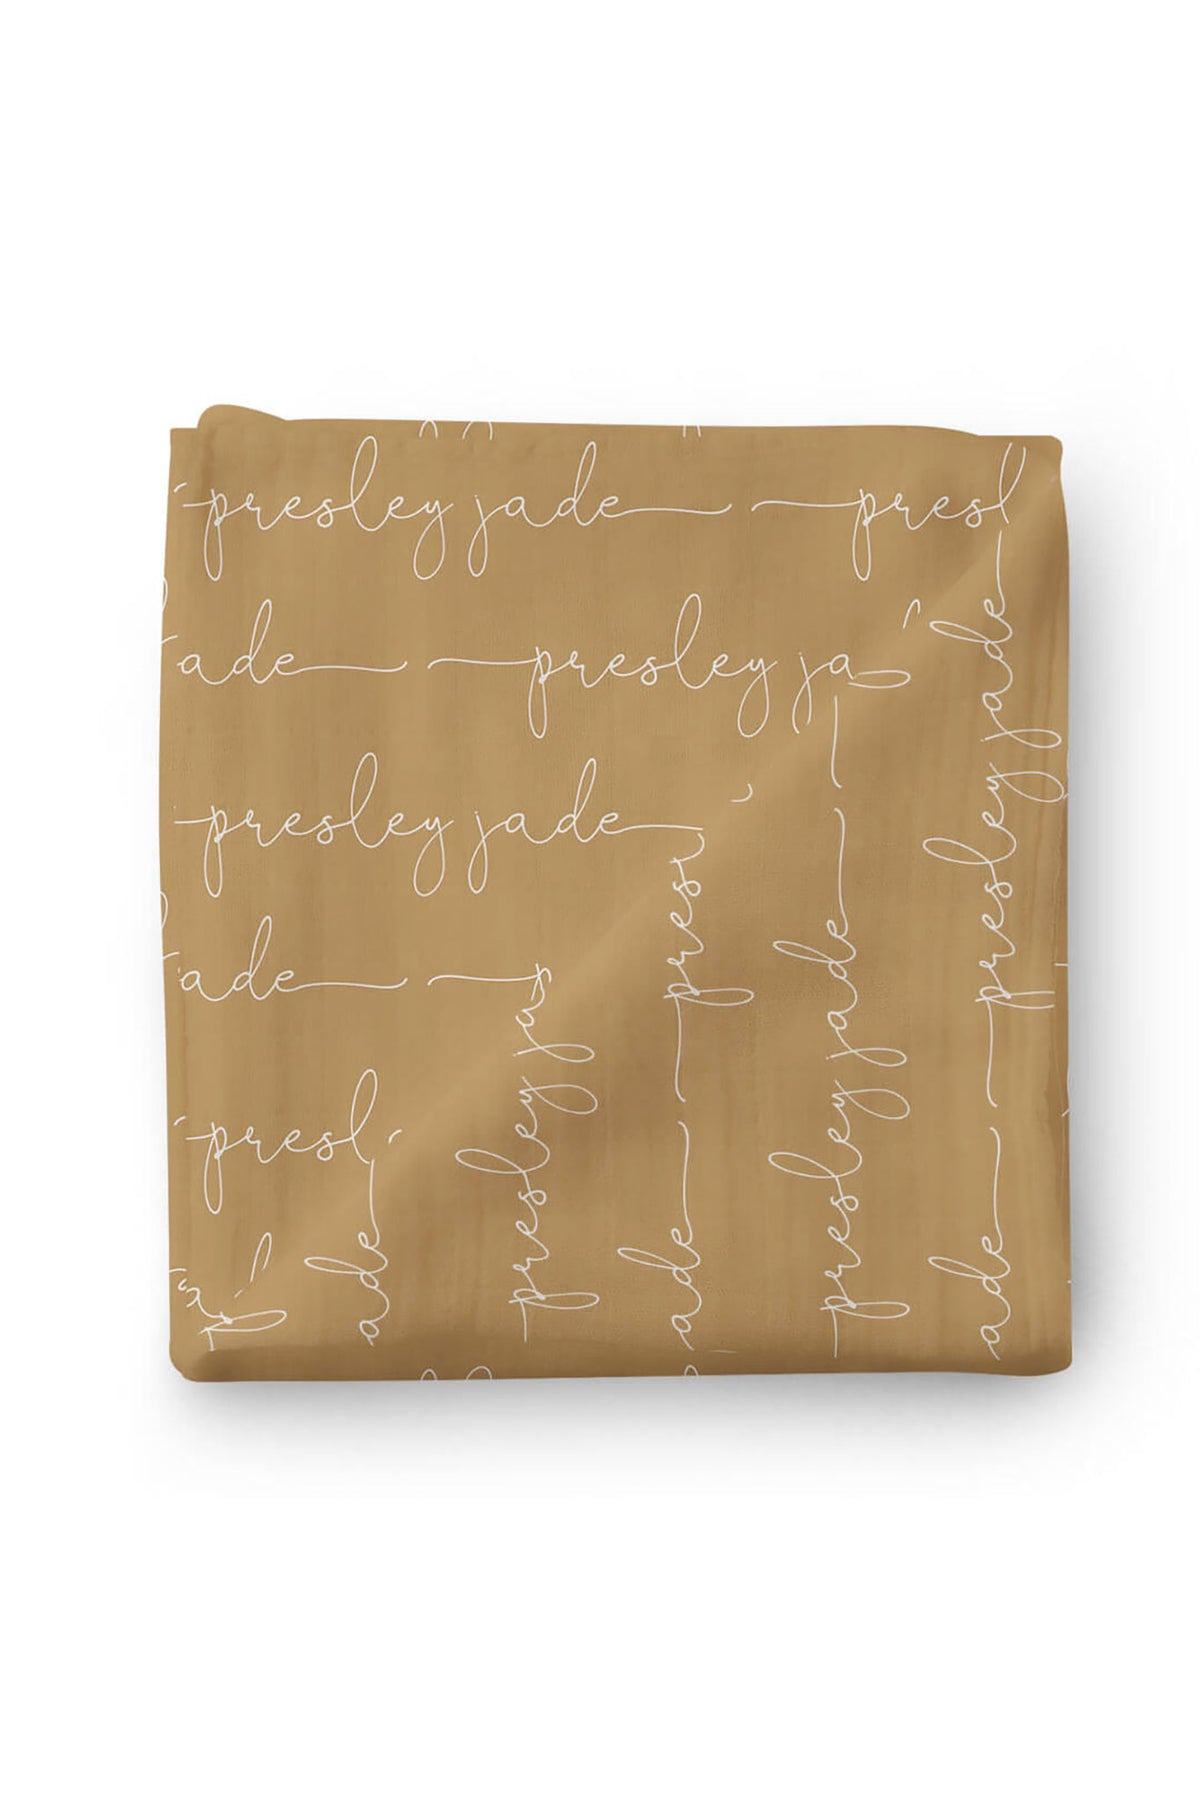 presley jade presl
ade presley ja
presley jade
ade
presl
presley jade
presley jade
presley jade
pres
ade
ade
ade